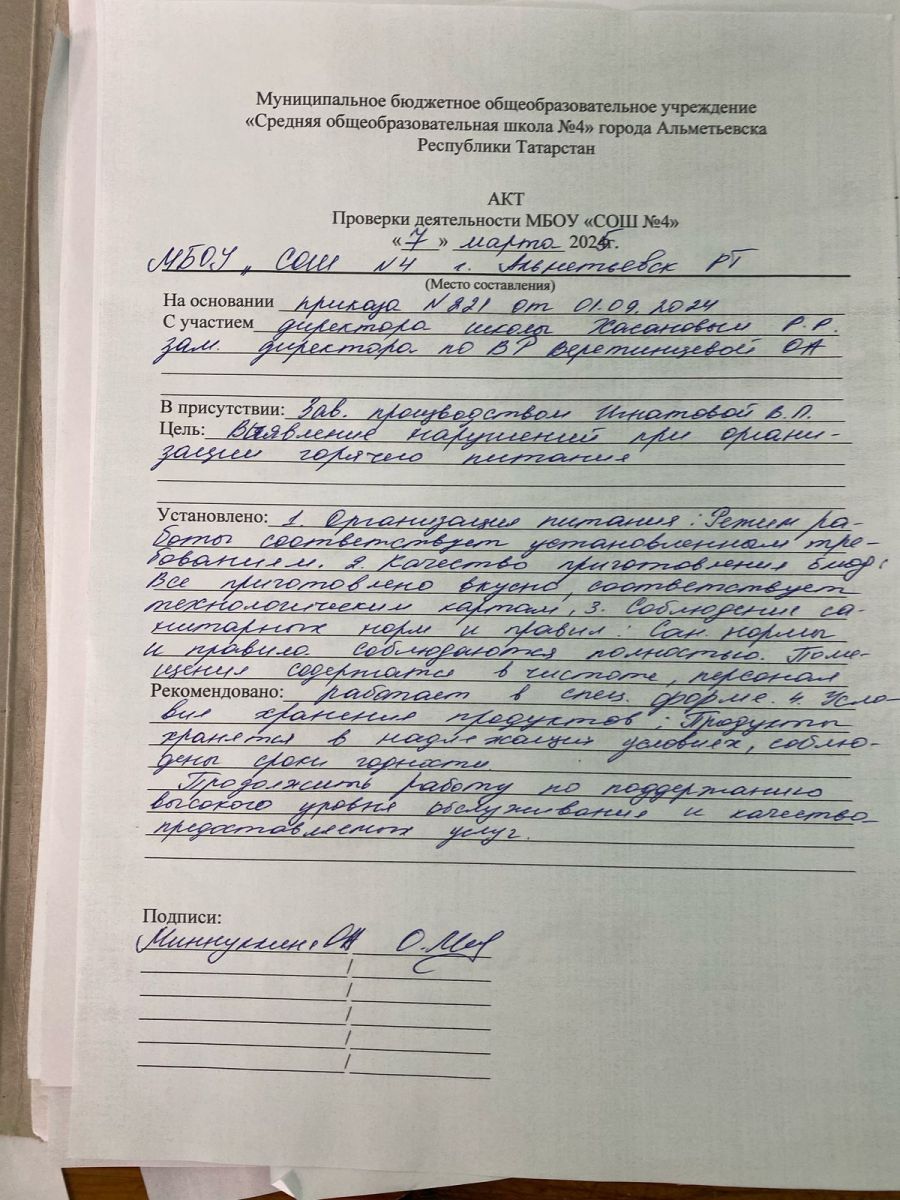 Муниципальное бюджетное общеобразовательное учреждение
«Средняя общеобразовательная школа №4» города Альметьевска
Республики Татарстан
АКТ
Проверки деятельности МБОУ «СОШ №4»
«7» марта 2025г.
МБОУ „ СОШ №4 г. Альметьевск РТ
(Место составления)
На основании приказа №221 от 01.09.2024
С участием директора школы Хасановым Р.Р.
зам. директора по ВР Веретинцевой ОА
В присутствии: Зав. производством Игнатовой В.П.
Цель: Выявление нарушений при органи-
зации горячего питания
Установлено: 1. Организация питания: Режим ра-
боты соответствует установленным тре-
бованием. 2. Качество приготовления блюд:
Все приготовлено вкусно, соответствует
технологическим картам, 3. Соблюдение са-
нитарных норм и правил: Сан. нормы
и правила соблюдаются полностью. Поме-
щения содержатся в чистоте, персонал
Рекомендовано: работает в спец. форме. 4. Усло-
вия хранения продуктов: Продукты
хранятся в надлежащих условиях, соблю-
дены сроки годности
Продолжить работу по поддержанию
высокого уровня обслуживания и качества
предоставляемых услуг.
Подписи:
ОА /
/
/
/
/
/